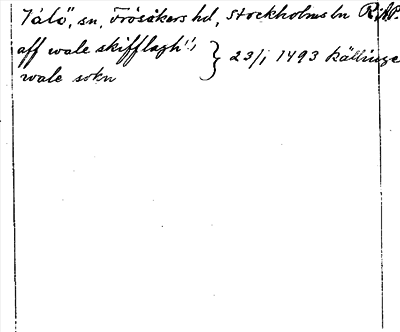 Vätö, sn, Frösåkers hd, Stockholms ln RAP.
aff wale skifflagh!) } 23/1 1493 Källinge
wale sokn